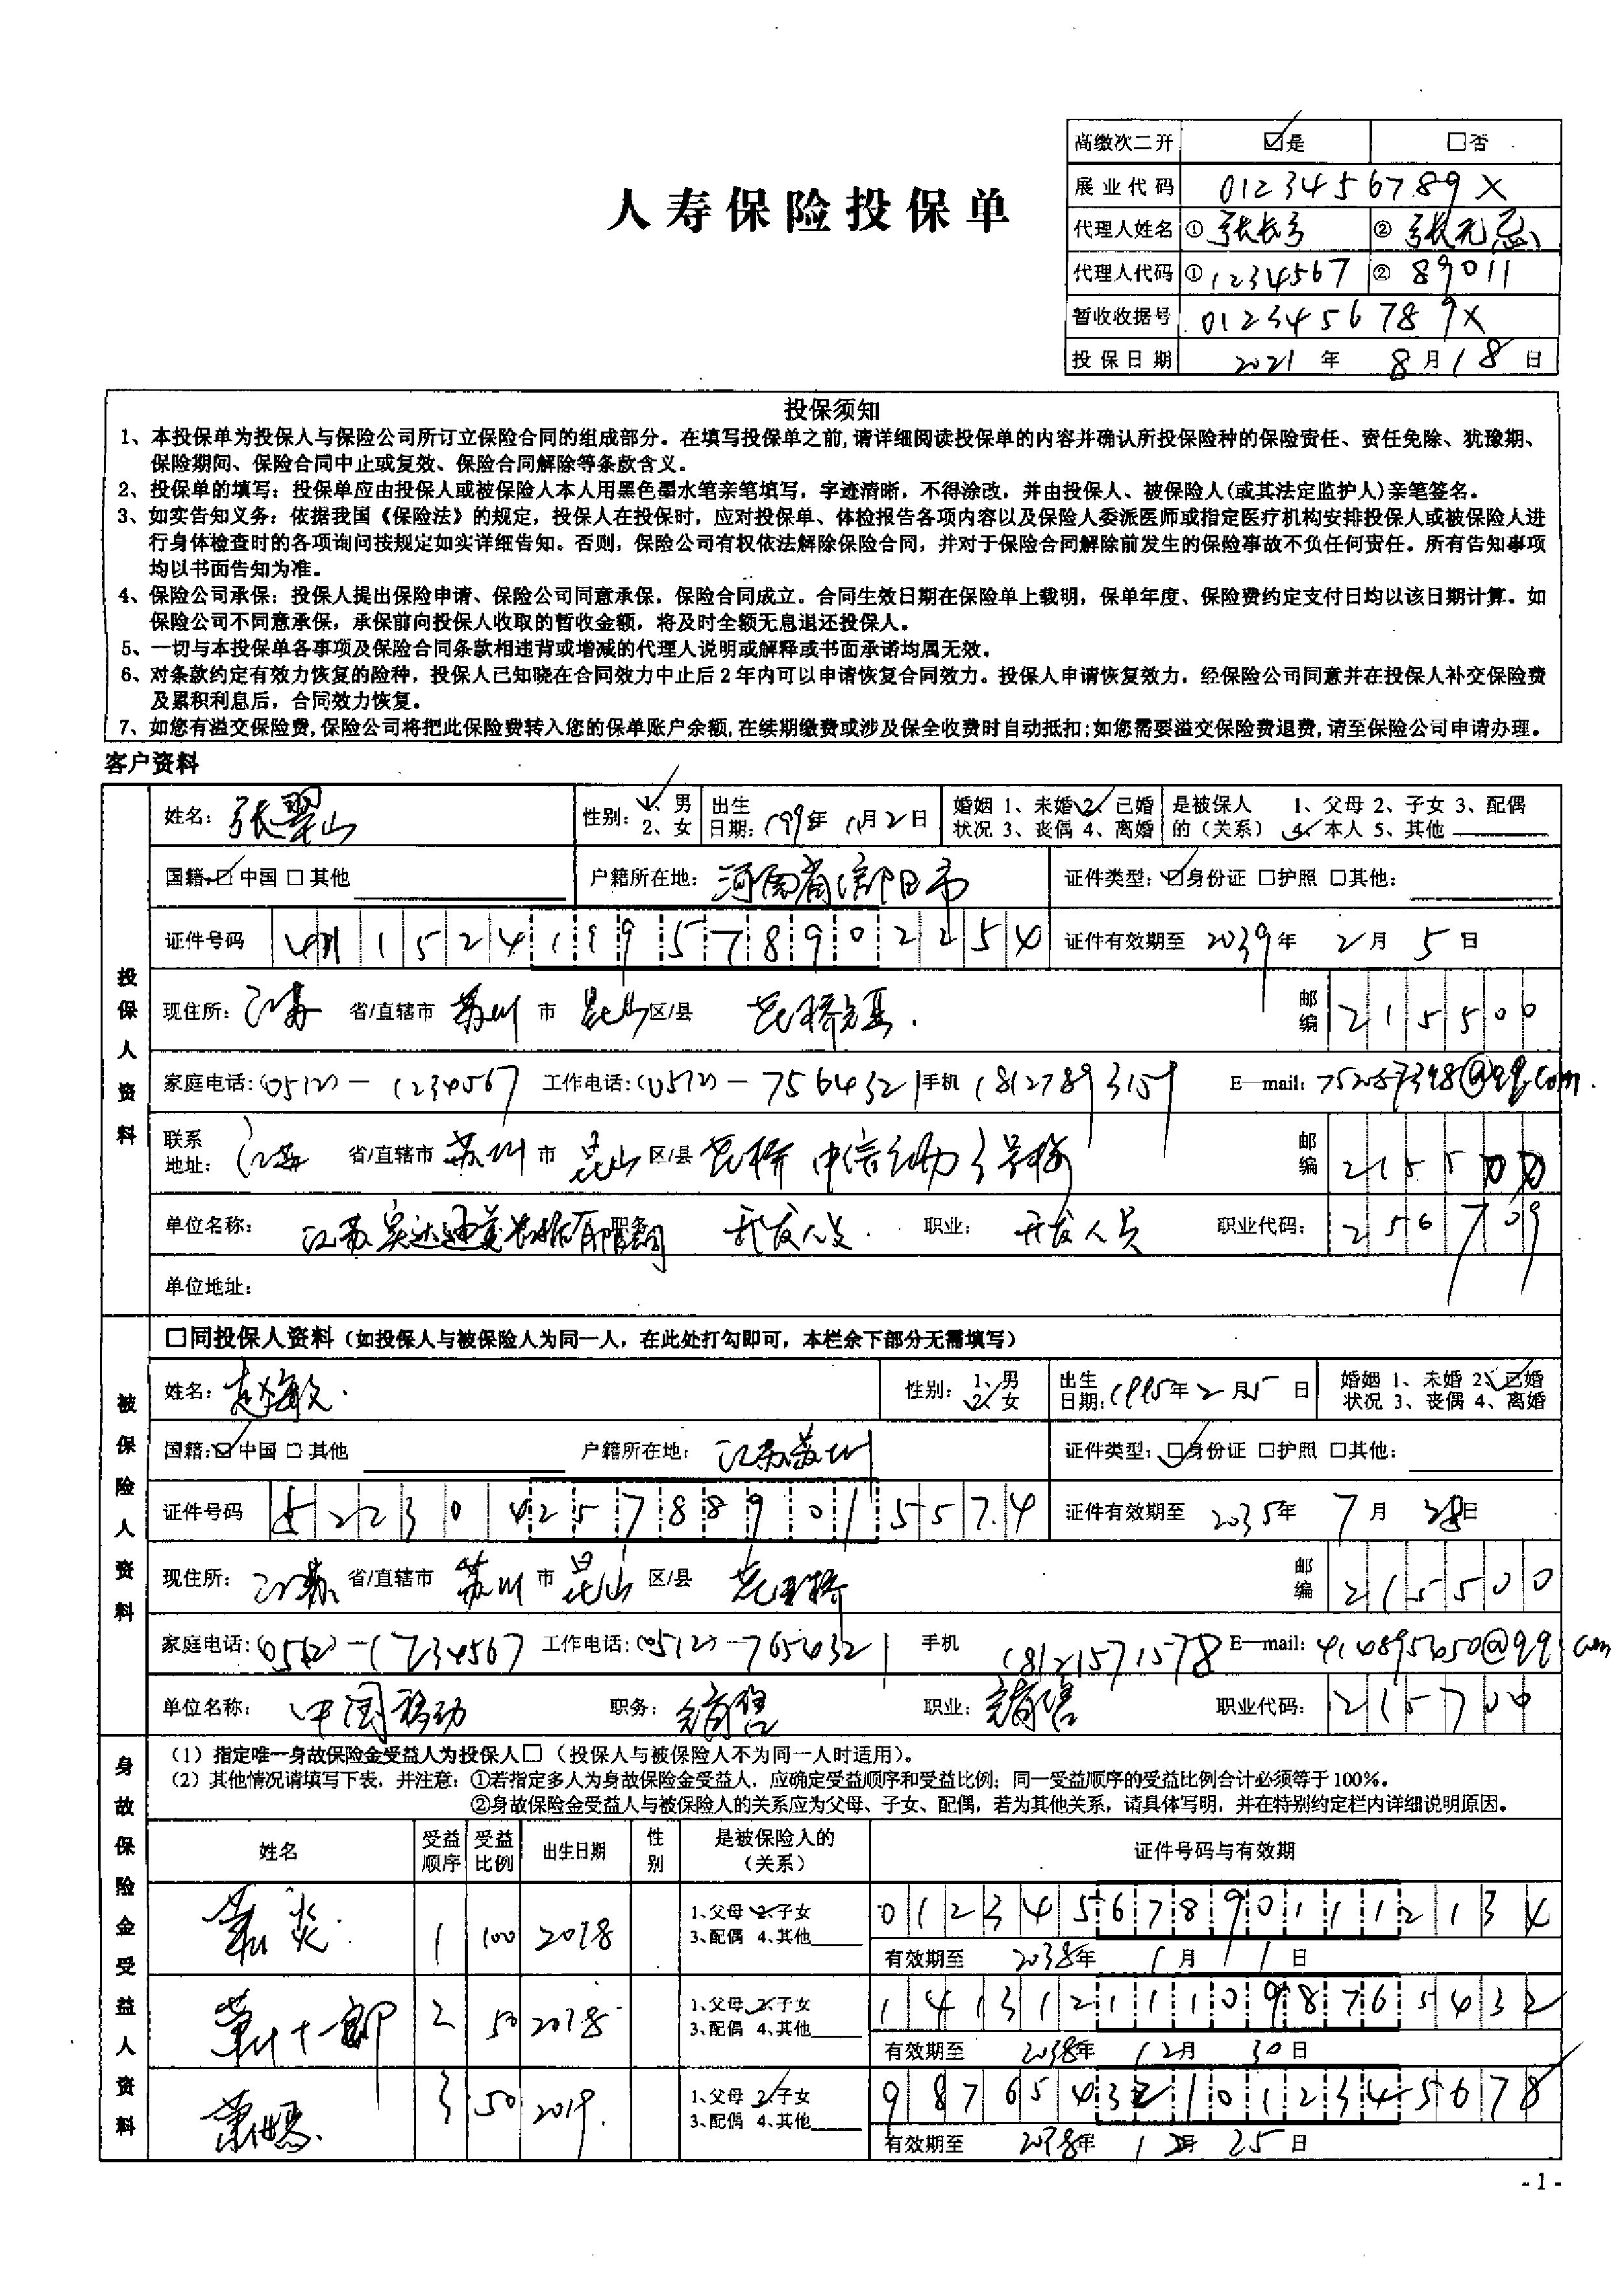 高缴次二开 ☑是 □否
人寿保险投保单
展业代码 0123456789X
代理人姓名 ① 张长弓 ② 张无忌
代理人代码 ① 1234567 ② 89011
暂收收据号 0123456789X
投保日期 2021 年 8 月 18 日
投保须知
1、本投保单为投保人与保险公司所订立保险合同的组成部分。在填写投保单之前,请详细阅读投保单的内容并确认所投保险种的保险责任、责任免除、犹豫期、
保险期间、保险合同中止或复效、保险合同解除等条款含义。
2、投保单的填写：投保单应由投保人或被保险人本人用黑色墨水笔亲笔填写，字迹清晰，不得涂改，并由投保人、被保险人(或其法定监护人)亲笔签名。
3、如实告知义务：依据我国《保险法》的规定，投保人在投保时，应对投保单、体检报告各项内容以及保险人委派医师或指定医疗机构安排投保人或被保险人进
行身体检查时的各项询问按规定如实详细告知。否则，保险公司有权依法解除保险合同，并对于保险合同解除前发生的保险事故不负任何责任。所有告知事项
均以书面告知为准。
4、保险公司承保：投保人提出保险申请、保险公司同意承保，保险合同成立。合同生效日期在保险单上载明，保单年度、保险费约定支付日均以该日期计算。如
保险公司不同意承保，承保前向投保人收取的暂收金额，将及时全额无息退还投保人。
5、一切与本投保单各事项及保险合同条款相违背或增减的代理人说明或解释或书面承诺均属无效。
6、对条款约定有效力恢复的险种，投保人已知晓在合同效力中止后2年内可以申请恢复合同效力。投保人申请恢复效力，经保险公司同意并在投保人补交保险费
及累积利息后，合同效力恢复。
7、如您有溢交保险费,保险公司将把此保险费转入您的保单账户余额,在续期缴费或涉及保全收费时自动抵扣;如您需要溢交保险费退费,请至保险公司申请办理。
客户资料
投保人资料
姓名：张翠山 性别：1、男 2、女 出生日期： 年 11月2日 婚姻状况 1、未婚 2、已婚 3、丧偶 4、离婚 是被保人的（关系） 1、父母 2、子女 3、配偶 4、本人 5、其他
国籍：☑中国 □其他 户籍所在地：河南省信阳市 证件类型：☑身份证 □护照 □其他：
证件号码 1524199578902254 证件有效期至 2039年 2月 5日
现住所：江苏 省/直辖市 苏州 市 昆山 区/县 花桥镇. 邮编 215500
家庭电话：(0512)-1234567 工作电话：(0512)-7564321 手机 18127893159 E—mail: @qq.com.
联系地址：江苏 省/直辖市 苏州 市 昆山 区/县 花桥 中信 号楼 邮编 215500
单位名称：江苏实达迪美 有限公司 职务：开发人员. 职业：开发人员 职业代码：256709
单位地址：
被保险人资料
□同投保人资料（如投保人与被保险人为同一人，在此处打勾即可，本栏余下部分无需填写）
姓名：赵敏. 性别：1、男 2、女 出生日期：1995年 2月5日 婚姻状况 1、未婚 2、已婚 3、丧偶 4、离婚
国籍：☑中国 □其他 户籍所在地：江苏苏州 证件类型：☑身份证 □护照 □其他：
证件号码 522304257889015574 证件有效期至 2035年 7月 28日
现住所：江苏 省/直辖市 苏州 市 昆山 区/县 花桥 邮编 215500
家庭电话：(0512)-1234567 工作电话：(0512)-7654321 手机 18121571578 E—mail: @qq.com
单位名称：中国移动 职务：销售 职业：销售 职业代码：215700
身故保险金受益人资料
（1）指定唯一身故保险金受益人为投保人□（投保人与被保险人不为同一人时适用）。
（2）其他情况请填写下表，并注意：①若指定多人为身故保险金受益人，应确定受益顺序和受益比例；同一受益顺序的受益比例合计必须等于100%。
②身故保险金受益人与被保险人的关系应为父母、子女、配偶，若为其他关系，请具体写明，并在特别约定栏内详细说明原因。
姓名 受益顺序 受益比例 出生日期 性别 是被保险人的（关系） 证件号码与有效期
萧炎. 1 100 2018 1、父母 2、子女 3、配偶 4、其他 012345678901112134
有效期至 2038年 1月 11日
萧十一郎 2 50 2018 1、父母 2、子女 3、配偶 4、其他 141312111098765432
有效期至 2038年 12月 30日
萧 3 50 2019. 1、父母 2、子女 3、配偶 4、其他 987654321012345678
有效期至 2038年 12月 25日
- 1 -